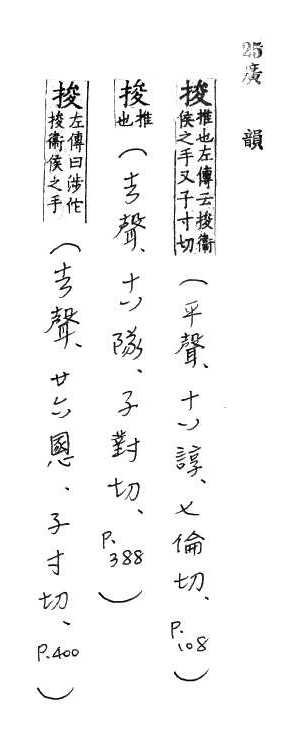 25廣韻
捘推也左傳云捘衞侯之手又子寸切(平聲、十八諄、七倫切、P.108)
捘推也(去聲、十八隊、子對切、P.388)
捘左傳曰涉佗捘衞侯之手(去聲、廿六慁、子寸切、P.400)